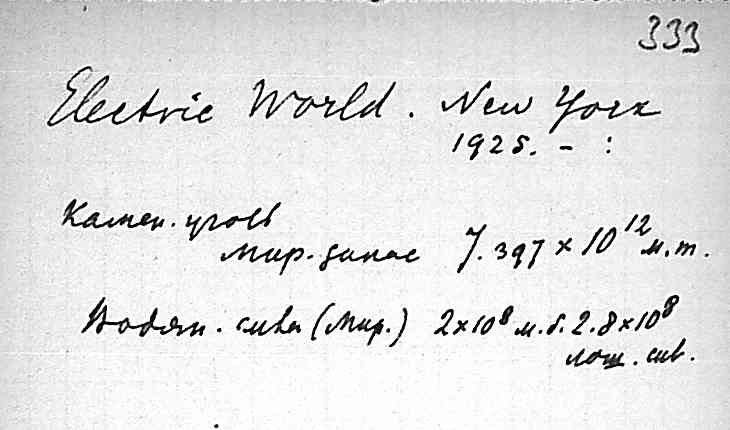 333
Electric World. New York
1925. - :
Камен. уголь
Мир. запас 7.397 × 10¹² м.т.
Водян. сила (Мир.) 2×10⁸ м.б. 2.8×10⁸
лош. сил.